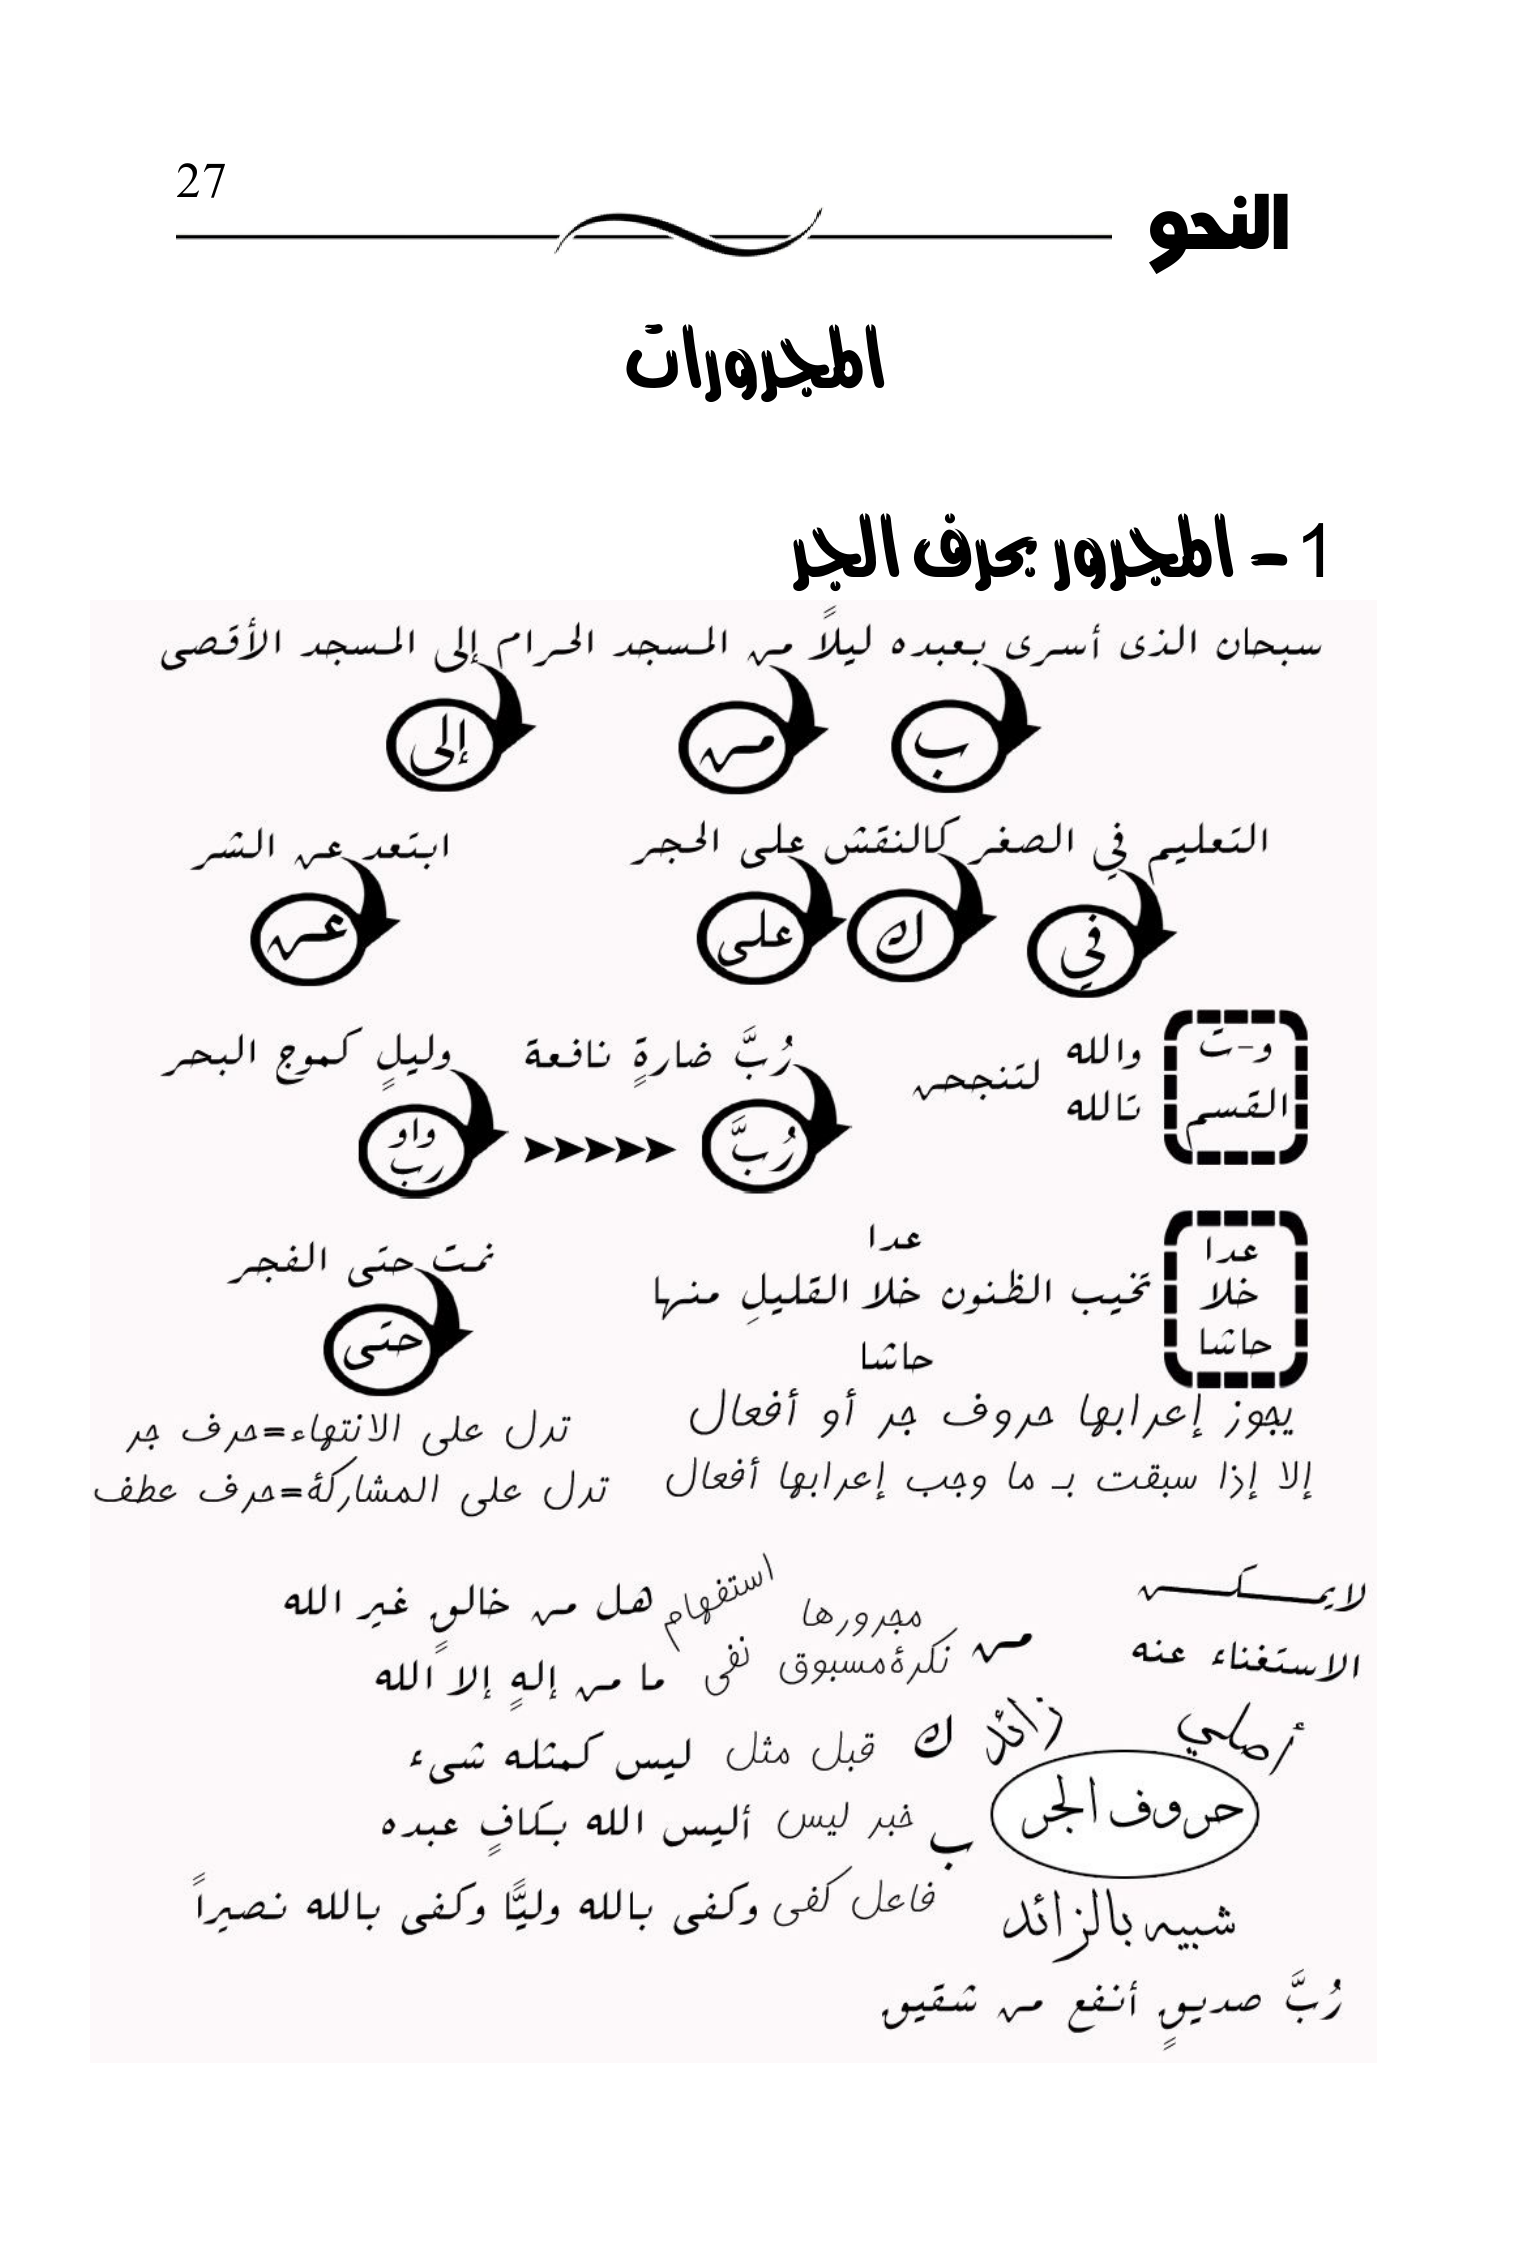 27
النحو
المجرورات
1 – المجرور بحرف الجر
سبحان الذى أسرى بعبده ليلاً من المسجد الحرام إلى المسجد الأقصى
ب من إلى
التعليم في الصغر كالنقش على الحجر ابتعد عن الشر
في ك على عن
و-ت القسم
والله
تالله
لتنجحن
رُبَّ ضارةٍ نافعة وليلٍ كموج البحر
رُبَّ واو رب
عدا
خلا
حاشا
عدا
تخيب الظنون خلا القليلِ منها
حاشا
نمت حتى الفجر
حتى
يجوز إعرابها حروف جر أو أفعال
إلا إذا سبقت بـ ما وجب إعرابها أفعال
تدل على الانتهاء=حرف جر
تدل على المشاركة=حرف عطف
لايمكن
الاستغناء عنه
أصلي
حروف الجر
زائد
من مجرورها نكرة مسبوق
استفهام هل من خالقٍ غير الله
نفى ما من إلهٍ إلا الله
ك قبل مثل ليس كمثله شىء
ب خبر ليس أليس الله بكافٍ عبده
فاعل كفى وكفى بالله وليًّا وكفى بالله نصيراً
شبيه بالزائد
رُبَّ صديقٍ أنفع من شقيق